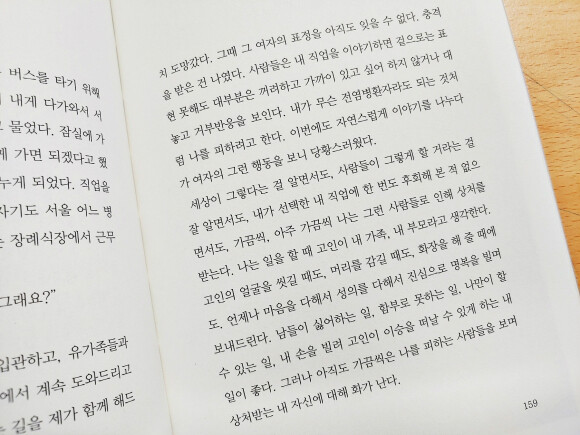 버스를 타기 위해
내게 다가와서 서
물었다. 잠실에 가
가면 되겠다고 했
누게 되었다. 직업을
자기도 서울 어느 병
장례식장에서 근무
그래요?”
입관하고, 유가족들과
에서 계속 도와드리고
길을 제가 함께 해드
치 도망갔다. 그때 그 여자의 표정을 아직도 잊을 수 없다. 충격
을 받은 건 나였다. 사람들은 내 직업을 이야기하면 겉으로는 표
현 못해도 대부분은 꺼려하고 가까이 있고 싶어 하지 않거나 대
놓고 거부반응을 보인다. 내가 무슨 전염병환자라도 되는 것처
럼 나를 피하려고 한다. 이번에도 자연스럽게 이야기를 나누다
가 여자의 그런 행동을 보니 당황스러웠다.
세상이 그렇다는 걸 알면서도, 사람들이 그렇게 할 거라는 걸
잘 알면서도, 내가 선택한 내 직업에 한 번도 후회해 본 적 없으
면서도, 가끔씩, 아주 가끔씩 나는 그런 사람들로 인해 상처를
받는다. 나는 일을 할 때 고인이 내 가족, 내 부모라고 생각한다.
고인의 얼굴을 씻길 때도, 머리를 감길 때도, 화장을 해 줄 때에
도, 언제나 마음을 다해서 성의를 다해서 진심으로 명복을 빌며
보내드린다. 남들이 싫어하는 일, 함부로 못하는 일, 나만이 할
수 있는 일, 내 손을 빌려 고인이 이승을 떠날 수 있게 하는 내
일이 좋다. 그러나 아직도 가끔씩은 나를 피하는 사람들을 보며
상처받는 내 자신에 대해 화가 난다.
159